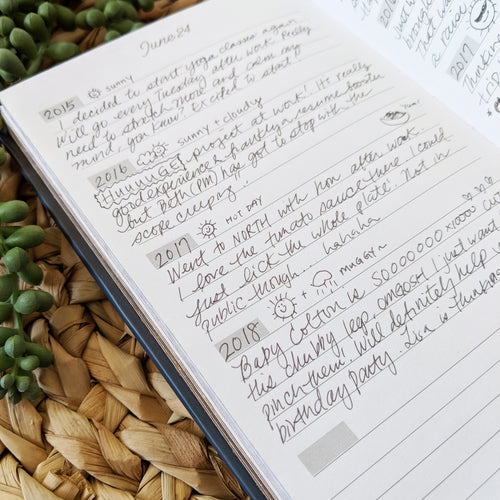 June 24
2015 sunny
I decided to start yoga classes again.
Will go every Tuesday after work. Really
need to stretch more and calm my
mind, you know? Excited to start!
2016 sunny + cloudy
HUUUUGE project at work! It's really
good experience & frankly a resume booster Yum!
but Beth (PM) has got to stop with the
scope creeping..
2017 HOT DAY
Went to NORTH with Hon after work.
I love the tomato sauce there I could
just lick the whole plate. Not in
public though... hahaha
2018 + MUGGY
Baby Colton is 50000000 x 1000 cu
His chubby legs, omgosh! I just want
pinch them! Will definitely help
birthday party. Lisa is thinkin
just
brough
That wa
a raise
2017
Thin